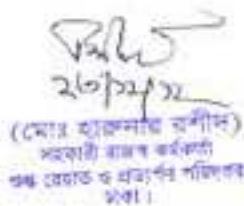 ২৩/১২/১২
(মোঃ হারুনার রশীদ)
সহকারী রাজস্ব কর্মকর্তা
শুল্ক রেয়াত ও প্রত্যর্পণ পরিদপ্তর
ঢাকা।